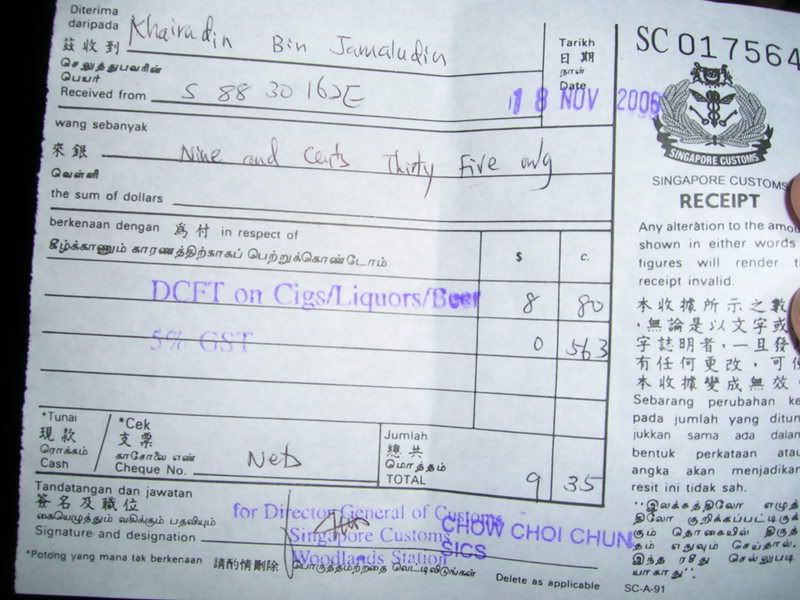 Diterima
daripada Khairudin Bin Jamaludin
茲收到
செலுத்துபவரின்
பெயர்
Received from S 88 30 162E
Tarikh
日期
நாள்
Date
18 NOV 2006
wang sebanyak
來銀 Nine and cents Thirty Five only
வெள்ளி
the sum of dollars
berkenaan dengan 爲付 in respect of
கீழ்க்காணும் காரணத்திற்காகப் பெற்றுக்கொண்டோம்
$ c.
DCFT on Cigs/Liquors/Beer 8 80
5% GST 0 563
*Tunai
現款
ரொக்கம்
Cash
*Cek
支票
காசோலை எண்
Cheque No. Nets
Jumlah
總共
மொத்தம்
TOTAL 9 35
Tandatangan dan jawatan
簽名及職位
கையெழுத்தும் வகிக்கும் பதவியும்
Signature and designation
for Director General of Customs
Singapore Customs
Woodlands Station
CHOW CHOI CHUN
SICS
*Potong yang mana tak berkenaan 請酌情刪除 பொருத்தமற்றதை வெட்டிவிடுங்கள் Delete as applicable
SC 017564
SINGAPORE CUSTOMS
SINGAPORE CUSTOMS
RECEIPT
Any alteration to the amou
shown in either words
figures will render t
receipt invalid.
本收據所示之數
，無論是以文字或
字誌明者，一旦發
有任何更改，可使
本收據變成無效
Sebarang perubahan ke
pada jumlah yang ditun
jukkan sama ada dalam
bentuk perkataan atau
angka akan menjadikan
resit ini tidak sah.
இலக்கத்திலோ எழுத்
திலோ குறிக்கப்பட்டிருக்
கும் தொகையில் திருத்
தம் எதுவும் செய்தால்,
இந்த ரசீது செல்லுபடி
யாகாது
SC-A-91